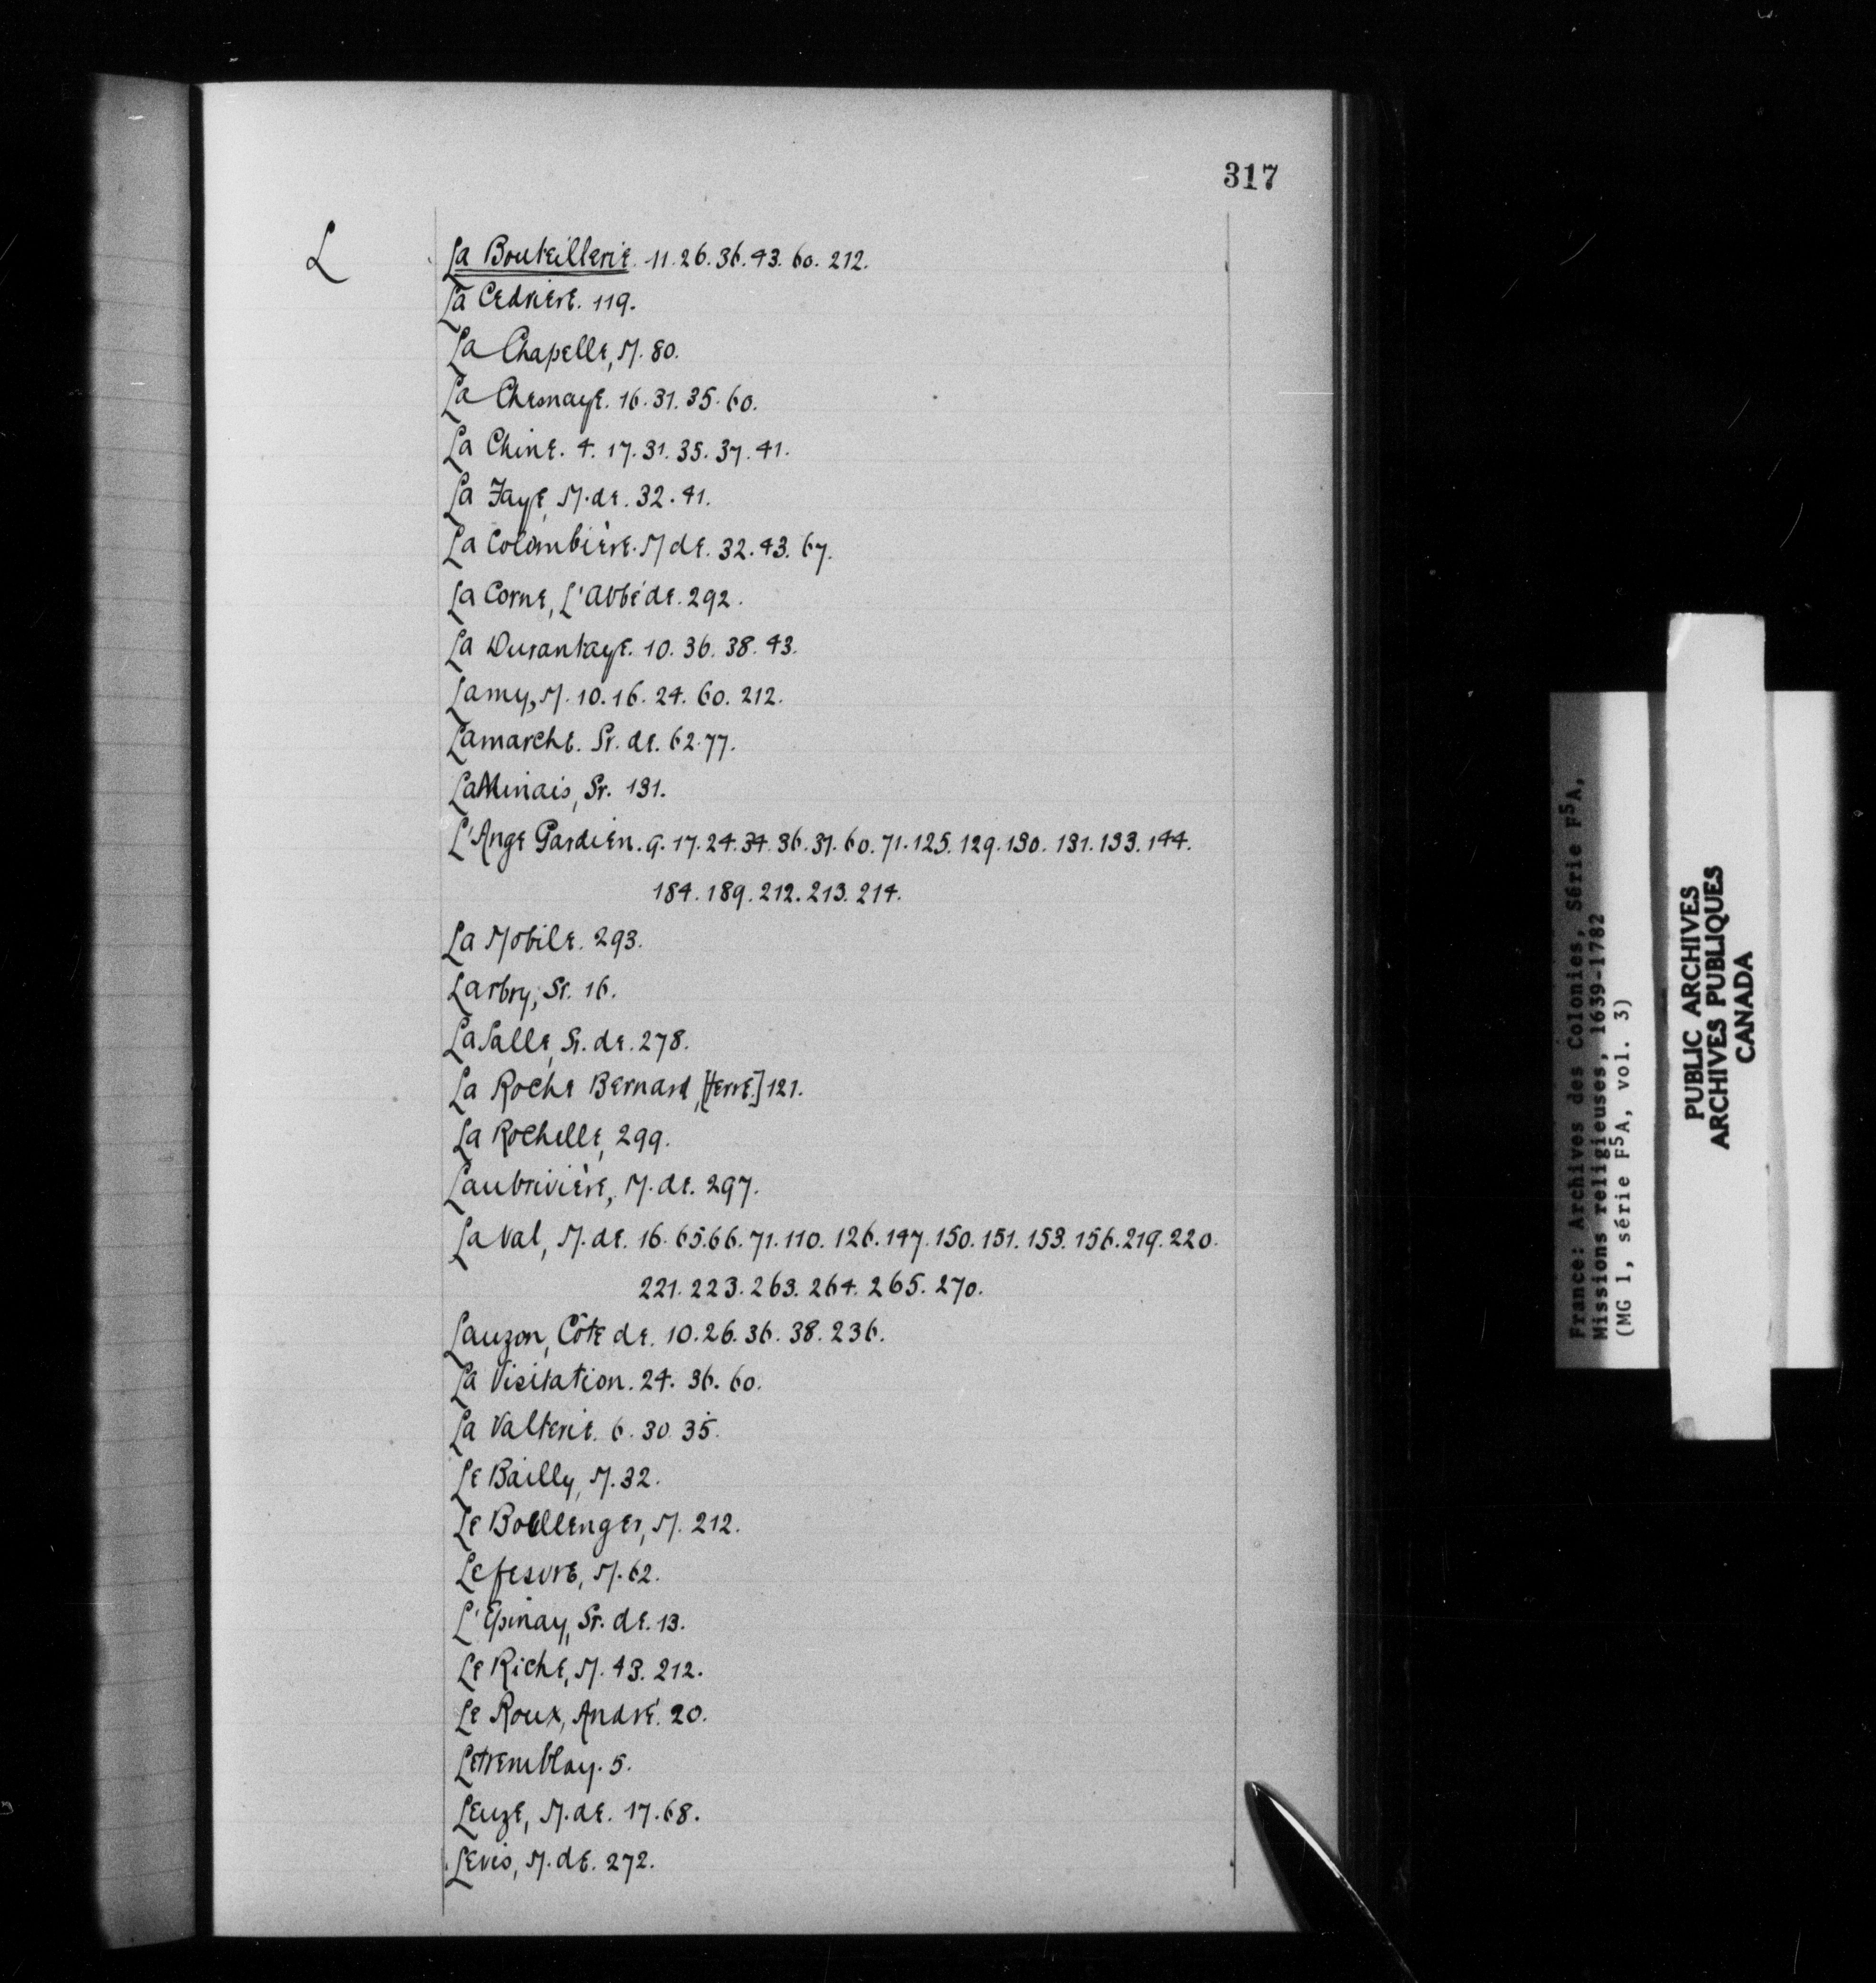 317
L
La Bouteillerie. 11. 26. 36. 43. 60. 212.
La Cedriere. 119.
La Chapelle, M. 80.
La Chesnaye. 16. 31. 35. 60.
La Chine. 4. 17. 31. 35. 37. 41.
La Faye, M. de. 32. 41.
La Colombière. M de. 32. 43. 67.
La Corne, L'Abbé de. 292.
La Durantaye. 10. 36. 38. 43.
Lamy, M. 10. 16. 24. 60. 212.
Lamarche. Sr. de. 62. 77.
LaMinais, Sr. 131.
L'Ange Gardien. 9. 17. 24. 34. 36. 37. 60. 71. 125. 129. 130. 131. 133. 144.
184. 189. 212. 213. 214.
La Mobile. 293.
Larbry, Sr. 16.
LaSalle, Sr. de. 278.
La Roche Bernard, [terre.] 121.
La Rochelle, 299.
Laubrivière, M. de. 297.
Laval, M. de. 16. 65. 66. 71. 110. 126. 147. 150. 151. 153. 156. 219. 220.
221. 223. 263. 264. 265. 270.
Lauzon, Côte de. 10. 26. 36. 38. 236.
La Visitation. 24. 36. 60.
La Valterie. 6. 30. 35.
Le Bailly, M. 32.
Le Boullenger, M. 212.
Lefesvre, M. 62.
L'Epinay, Sr. de. 13.
Le Riche, M. 43. 212.
Le Roux, André. 20.
Letremblay. 5.
Leuze, M. de. 17. 68.
Levis, M. de. 272.
France: Archives des Colonies, Série F5A,
Missions religieuses, 1639-1782
(MG 1, série F5A, vol. 3)
PUBLIC ARCHIVES
ARCHIVES PUBLIQUES
CANADA